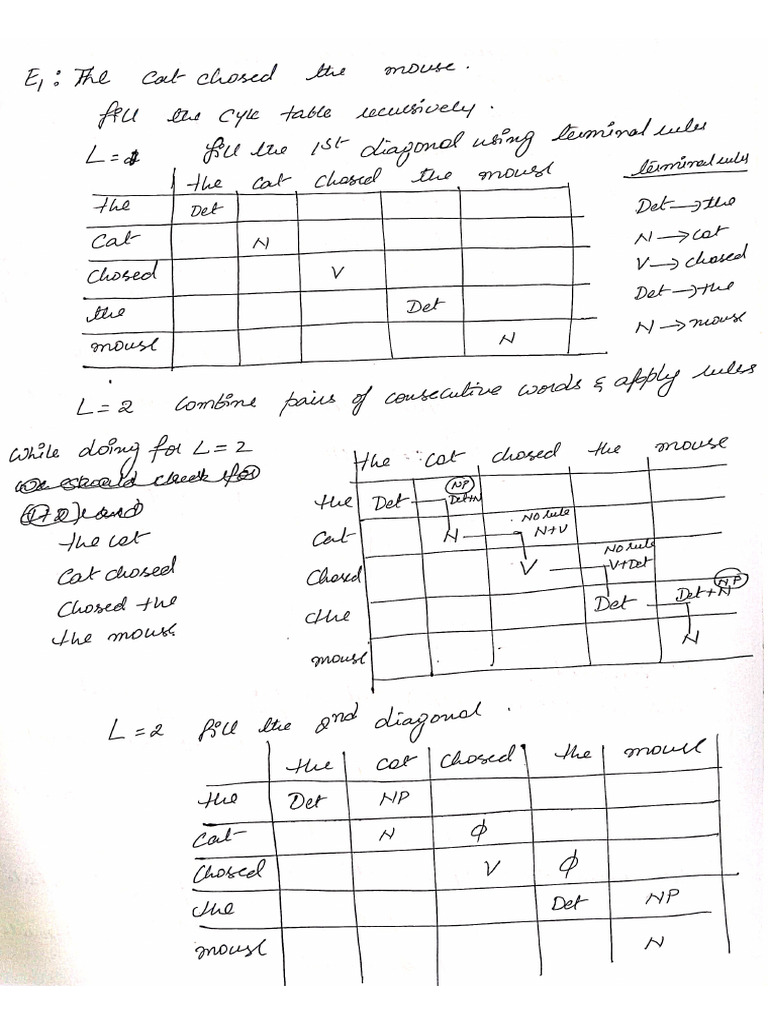 E1 : The cat chosed the mouse.
fill the CYK table recursively.
L = 1 fill the 1st diagonal using terminal rules
the cat chosed the mouse
the Det
cat N
chosed V
the Det
mouse N
terminal rules
Det → the
N → cat
V → chosed
Det → the
N → mouse
L = 2 combine pairs of consecutive words & apply rules
while doing for L = 2
we should check for
the cat
cat chosed
chosed the
the mouse
the cat chosed the mouse
the Det NP Det+N
cat N No rule N+V
chosed V No rule V+Det
the Det NP Det+N
mouse N
L = 2 fill the 2nd diagonal.
the cat chosed the mouse
the Det NP
cat N φ
chosed V φ
the Det NP
mouse N